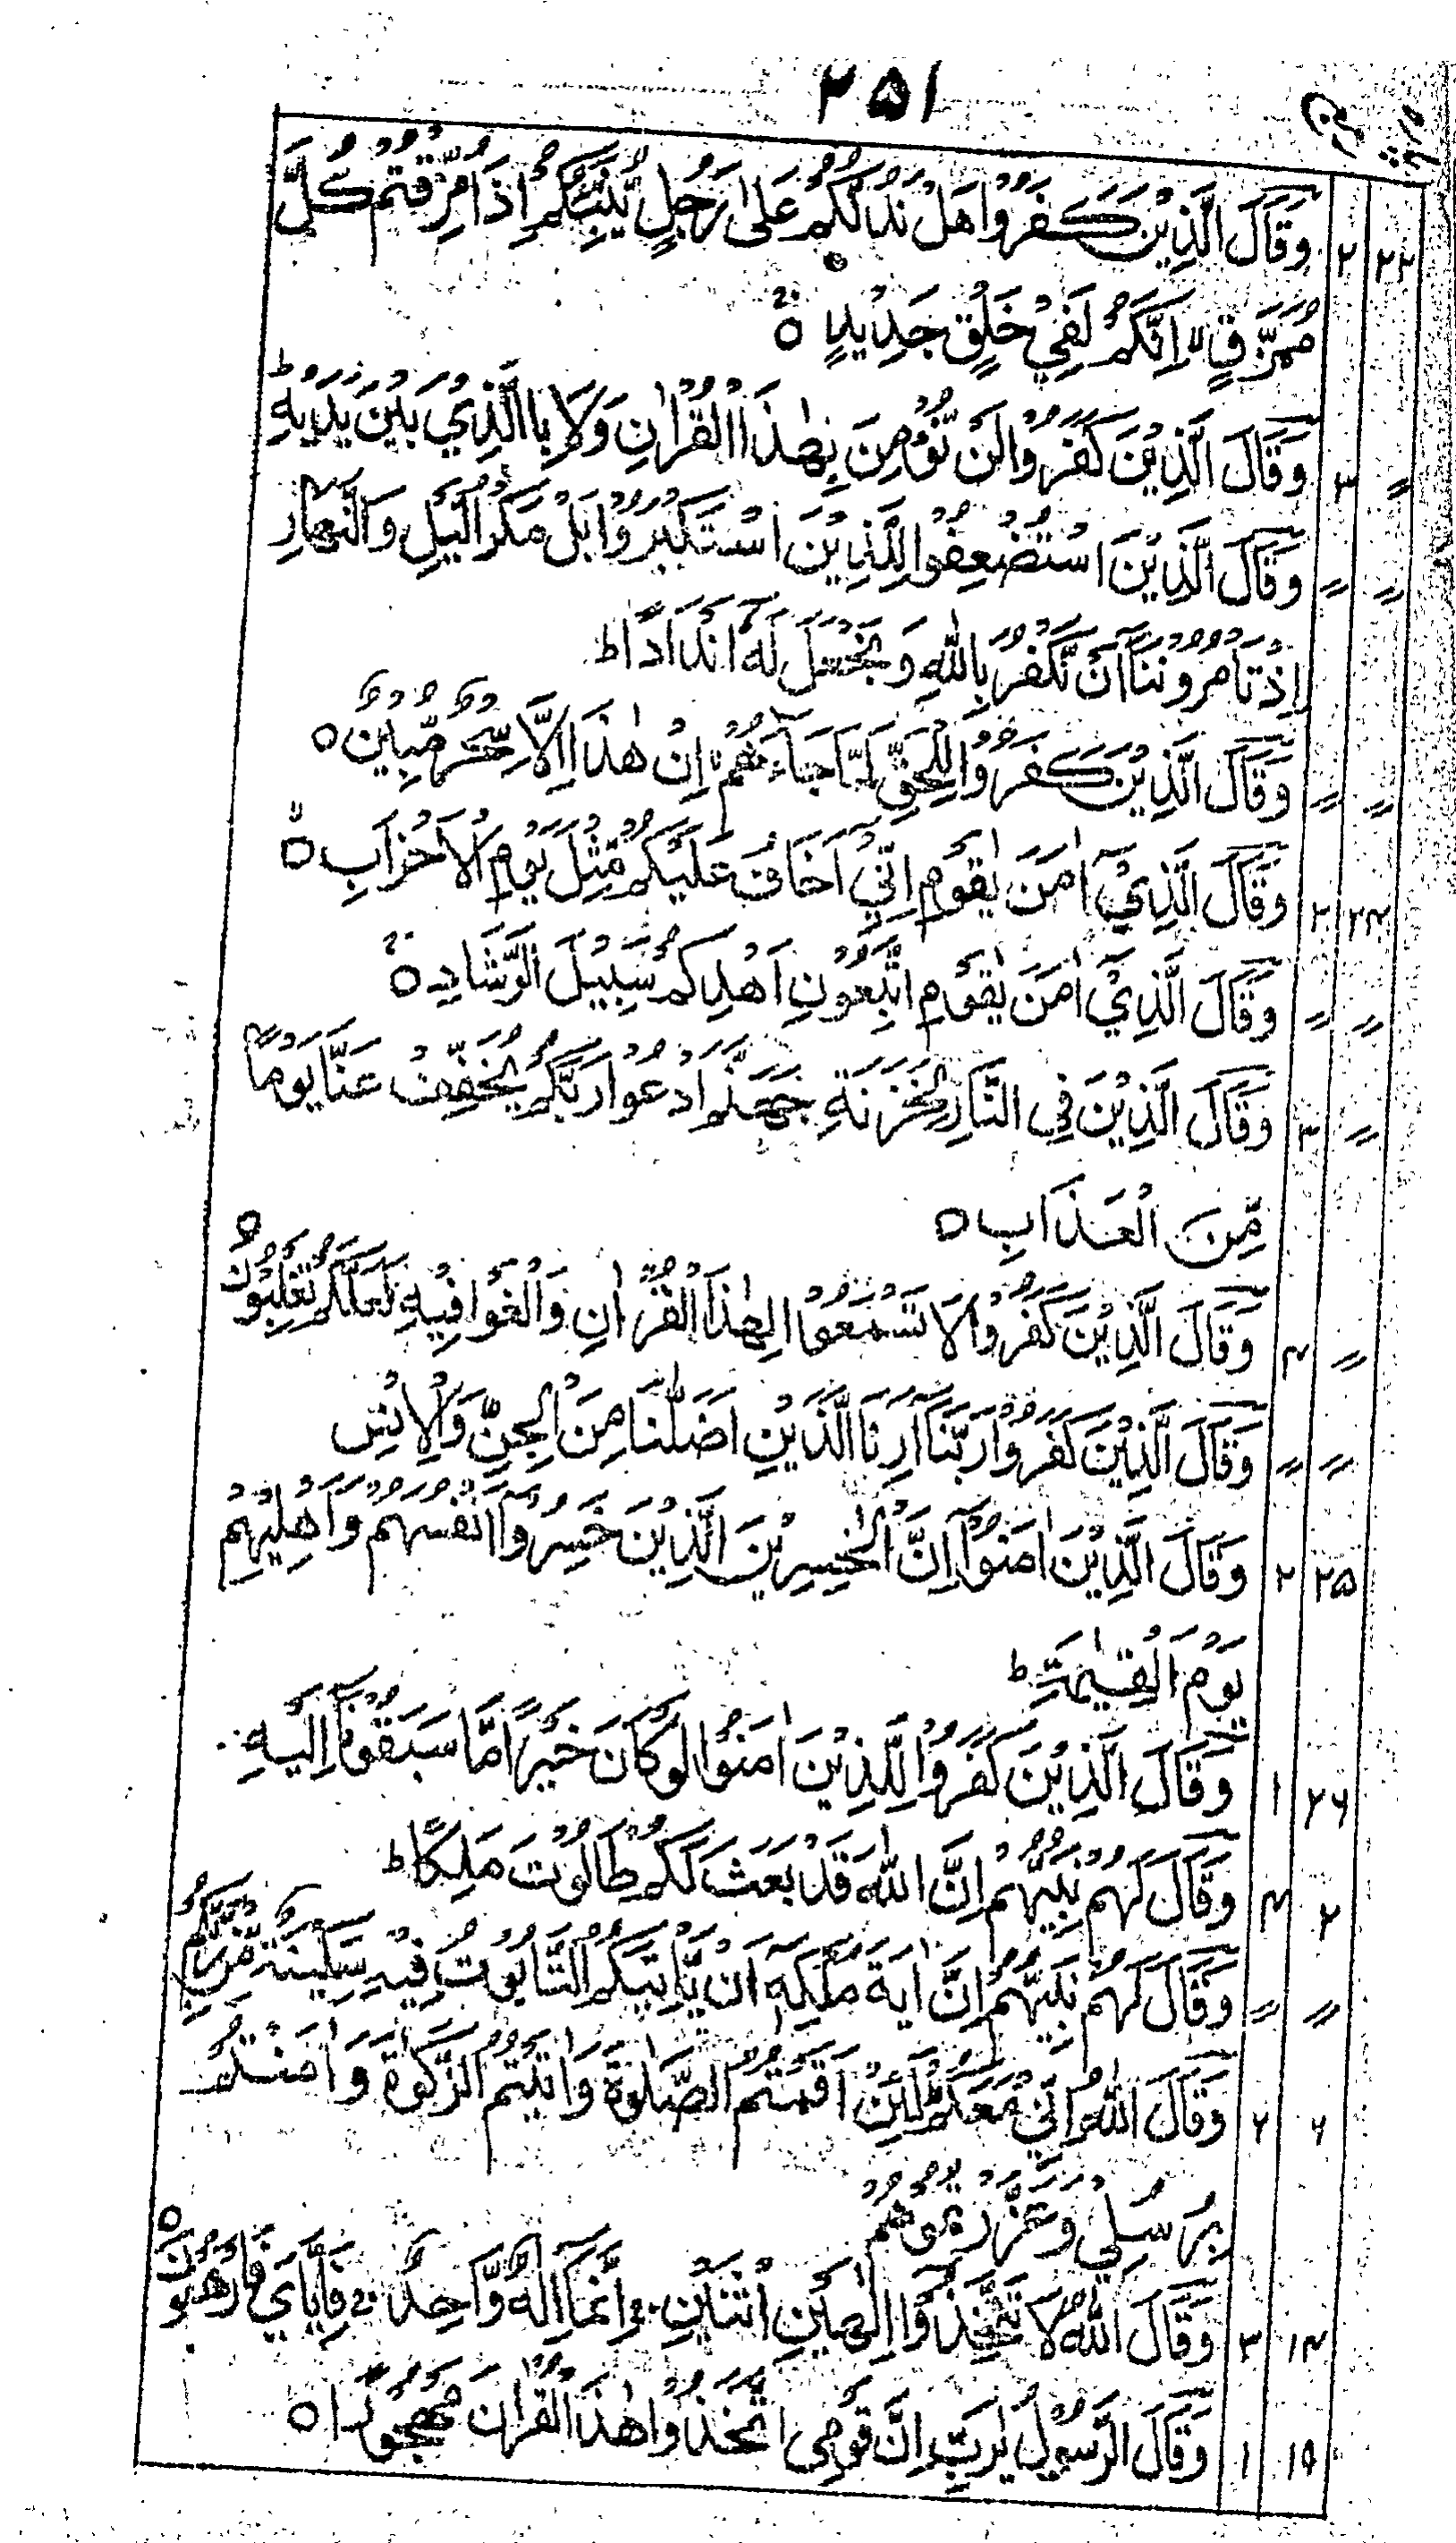 ۲۵۱
پارہ رکوع
۲۲ ۲ وَقَالَ الَّذِيْنَ كَفَرُوْا هَلْ نَدُلُّكُمْ عَلٰى رَجُلٍ يُّنَبِّئُكُمْ اِذَا مُزِّقْتُمْ كُلَّ
مُمَزَّقٍ ۙ اِنَّكُمْ لَفِيْ خَلْقٍ جَدِيْدٍ ۝
〃 ۳ وَقَالَ الَّذِيْنَ كَفَرُوْا لَنْ نُّؤْمِنَ بِهٰذَا الْقُرْاٰنِ وَلَا بِالَّذِيْ بَيْنَ يَدَيْهِ ط
〃 〃 وَقَالَ الَّذِيْنَ اسْتُضْعِفُوْا لِلَّذِيْنَ اسْتَكْبَرُوْا بَلْ مَكْرُ الَّيْلِ وَالنَّهَارِ
اِذْ تَاْمُرُوْنَنَآ اَنْ نَّكْفُرَ بِاللّٰهِ وَنَجْعَلَ لَهٗٓ اَنْدَادًا ط
〃 〃 وَقَالَ الَّذِيْنَ كَفَرُوْا لِلْحَقِّ لَمَّا جَآءَهُمْ ۙ اِنْ هٰذَآ اِلَّا سِحْرٌ مُّبِيْنٌ ۝
۲۴ ۲ وَقَالَ الَّذِيْٓ اٰمَنَ يٰقَوْمِ اِنِّيْٓ اَخَافُ عَلَيْكُمْ مِّثْلَ يَوْمِ الْاَحْزَابِ ۝
〃 〃 وَقَالَ الَّذِيْٓ اٰمَنَ يٰقَوْمِ اتَّبِعُوْنِ اَهْدِكُمْ سَبِيْلَ الرَّشَادِ ۝
〃 ۳ وَقَالَ الَّذِيْنَ فِي النَّارِ لِخَزَنَةِ جَهَنَّمَ ادْعُوْا رَبَّكُمْ يُخَفِّفْ عَنَّا يَوْمًا
مِّنَ الْعَذَابِ ۝
〃 ۴ وَقَالَ الَّذِيْنَ كَفَرُوْا لَا تَسْمَعُوْا لِهٰذَا الْقُرْاٰنِ وَالْغَوْا فِيْهِ لَعَلَّكُمْ تَغْلِبُوْنَ ۝
〃 〃 وَقَالَ الَّذِيْنَ كَفَرُوْا رَبَّنَآ اَرِنَا الَّذَيْنِ اَضَلّٰنَا مِنَ الْجِنِّ وَالْاِنْسِ
۲۵ ۲ وَقَالَ الَّذِيْنَ اٰمَنُوْٓا اِنَّ الْخٰسِرِيْنَ الَّذِيْنَ خَسِرُوْٓا اَنْفُسَهُمْ وَاَهْلِيْهِمْ
يَوْمَ الْقِيٰمَةِ ط
۲۶ ۱ وَقَالَ الَّذِيْنَ كَفَرُوْا لِلَّذِيْنَ اٰمَنُوْا لَوْ كَانَ خَيْرًا مَّا سَبَقُوْنَآ اِلَيْهِ
۲ ۴ وَقَالَ لَهُمْ نَبِيُّهُمْ اِنَّ اللّٰهَ قَدْ بَعَثَ لَكُمْ طَالُوْتَ مَلِكًا ط
〃 〃 وَقَالَ لَهُمْ نَبِيُّهُمْ اِنَّ اٰيَةَ مُلْكِهٖٓ اَنْ يَّاْتِيَكُمُ التَّابُوْتُ فِيْهِ سَكِيْنَةٌ مِّنْ رَّبِّكُمْ
۶ ۲ وَقَالَ اللّٰهُ اِنِّيْ مَعَكُمْ ط لَئِنْ اَقَمْتُمُ الصَّلٰوةَ وَاٰتَيْتُمُ الزَّكٰوةَ وَاٰمَنْتُمْ
بِرُسُلِيْ وَعَزَّرْتُمُوْهُمْ
۱۴ ۳ وَقَالَ اللّٰهُ لَا تَتَّخِذُوْٓا اِلٰهَيْنِ اثْنَيْنِ ۚ اِنَّمَا اِلٰهٌ وَّاحِدٌ ۚ فَاِيَّايَ فَارْهَبُوْنِ ۝
۱۹ ۱ وَقَالَ الرَّسُوْلُ يٰرَبِّ اِنَّ قَوْمِى اتَّخَذُوْا هٰذَا الْقُرْاٰنَ مَهْجُوْرًا ۝